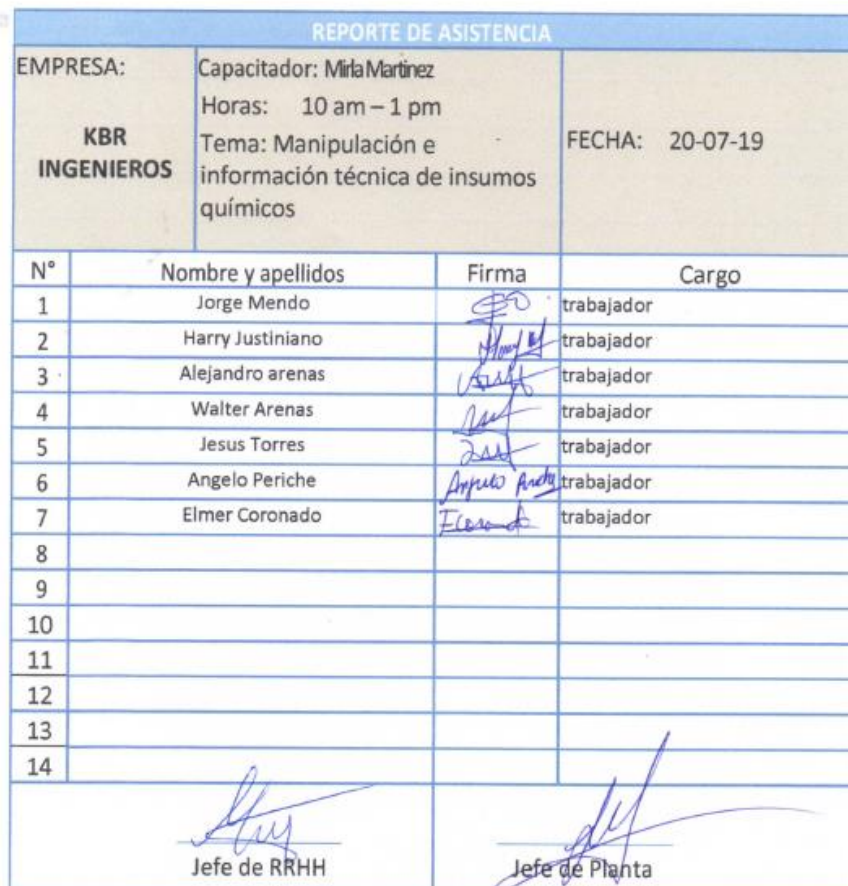 REPORTE DE ASISTENCIA
EMPRESA:
KBR
INGENIEROS
Capacitador: Mirla Martinez
Horas: 10 am – 1 pm
Tema: Manipulación e
información técnica de insumos
químicos
FECHA: 20-07-19
N° Nombre y apellidos Firma Cargo
1 Jorge Mendo trabajador
2 Harry Justiniano trabajador
3 Alejandro arenas trabajador
4 Walter Arenas trabajador
5 Jesus Torres trabajador
6 Angelo Periche trabajador
7 Elmer Coronado trabajador
8
9
10
11
12
13
14
Jefe de RRHH
Jefe de Planta